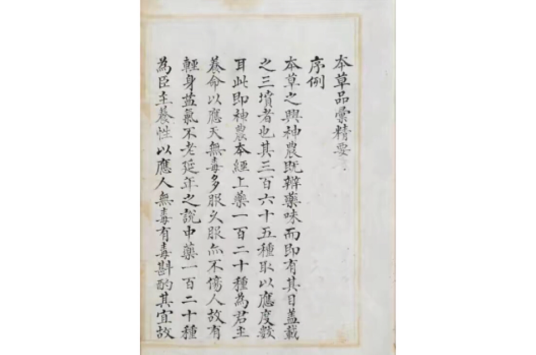 本草品彙精要
序例
本草之興神農既辨藥味而即有其目蓋載
之三墳者也其三百六十五種取以應度數
耳此即神農本經上藥一百二十種為君主
養命以應天無毒多服久服而不傷人故有
輕身益氣不老延年之說中藥一百二十種
為臣主養性以應人無毒有毒斟酌其宜故